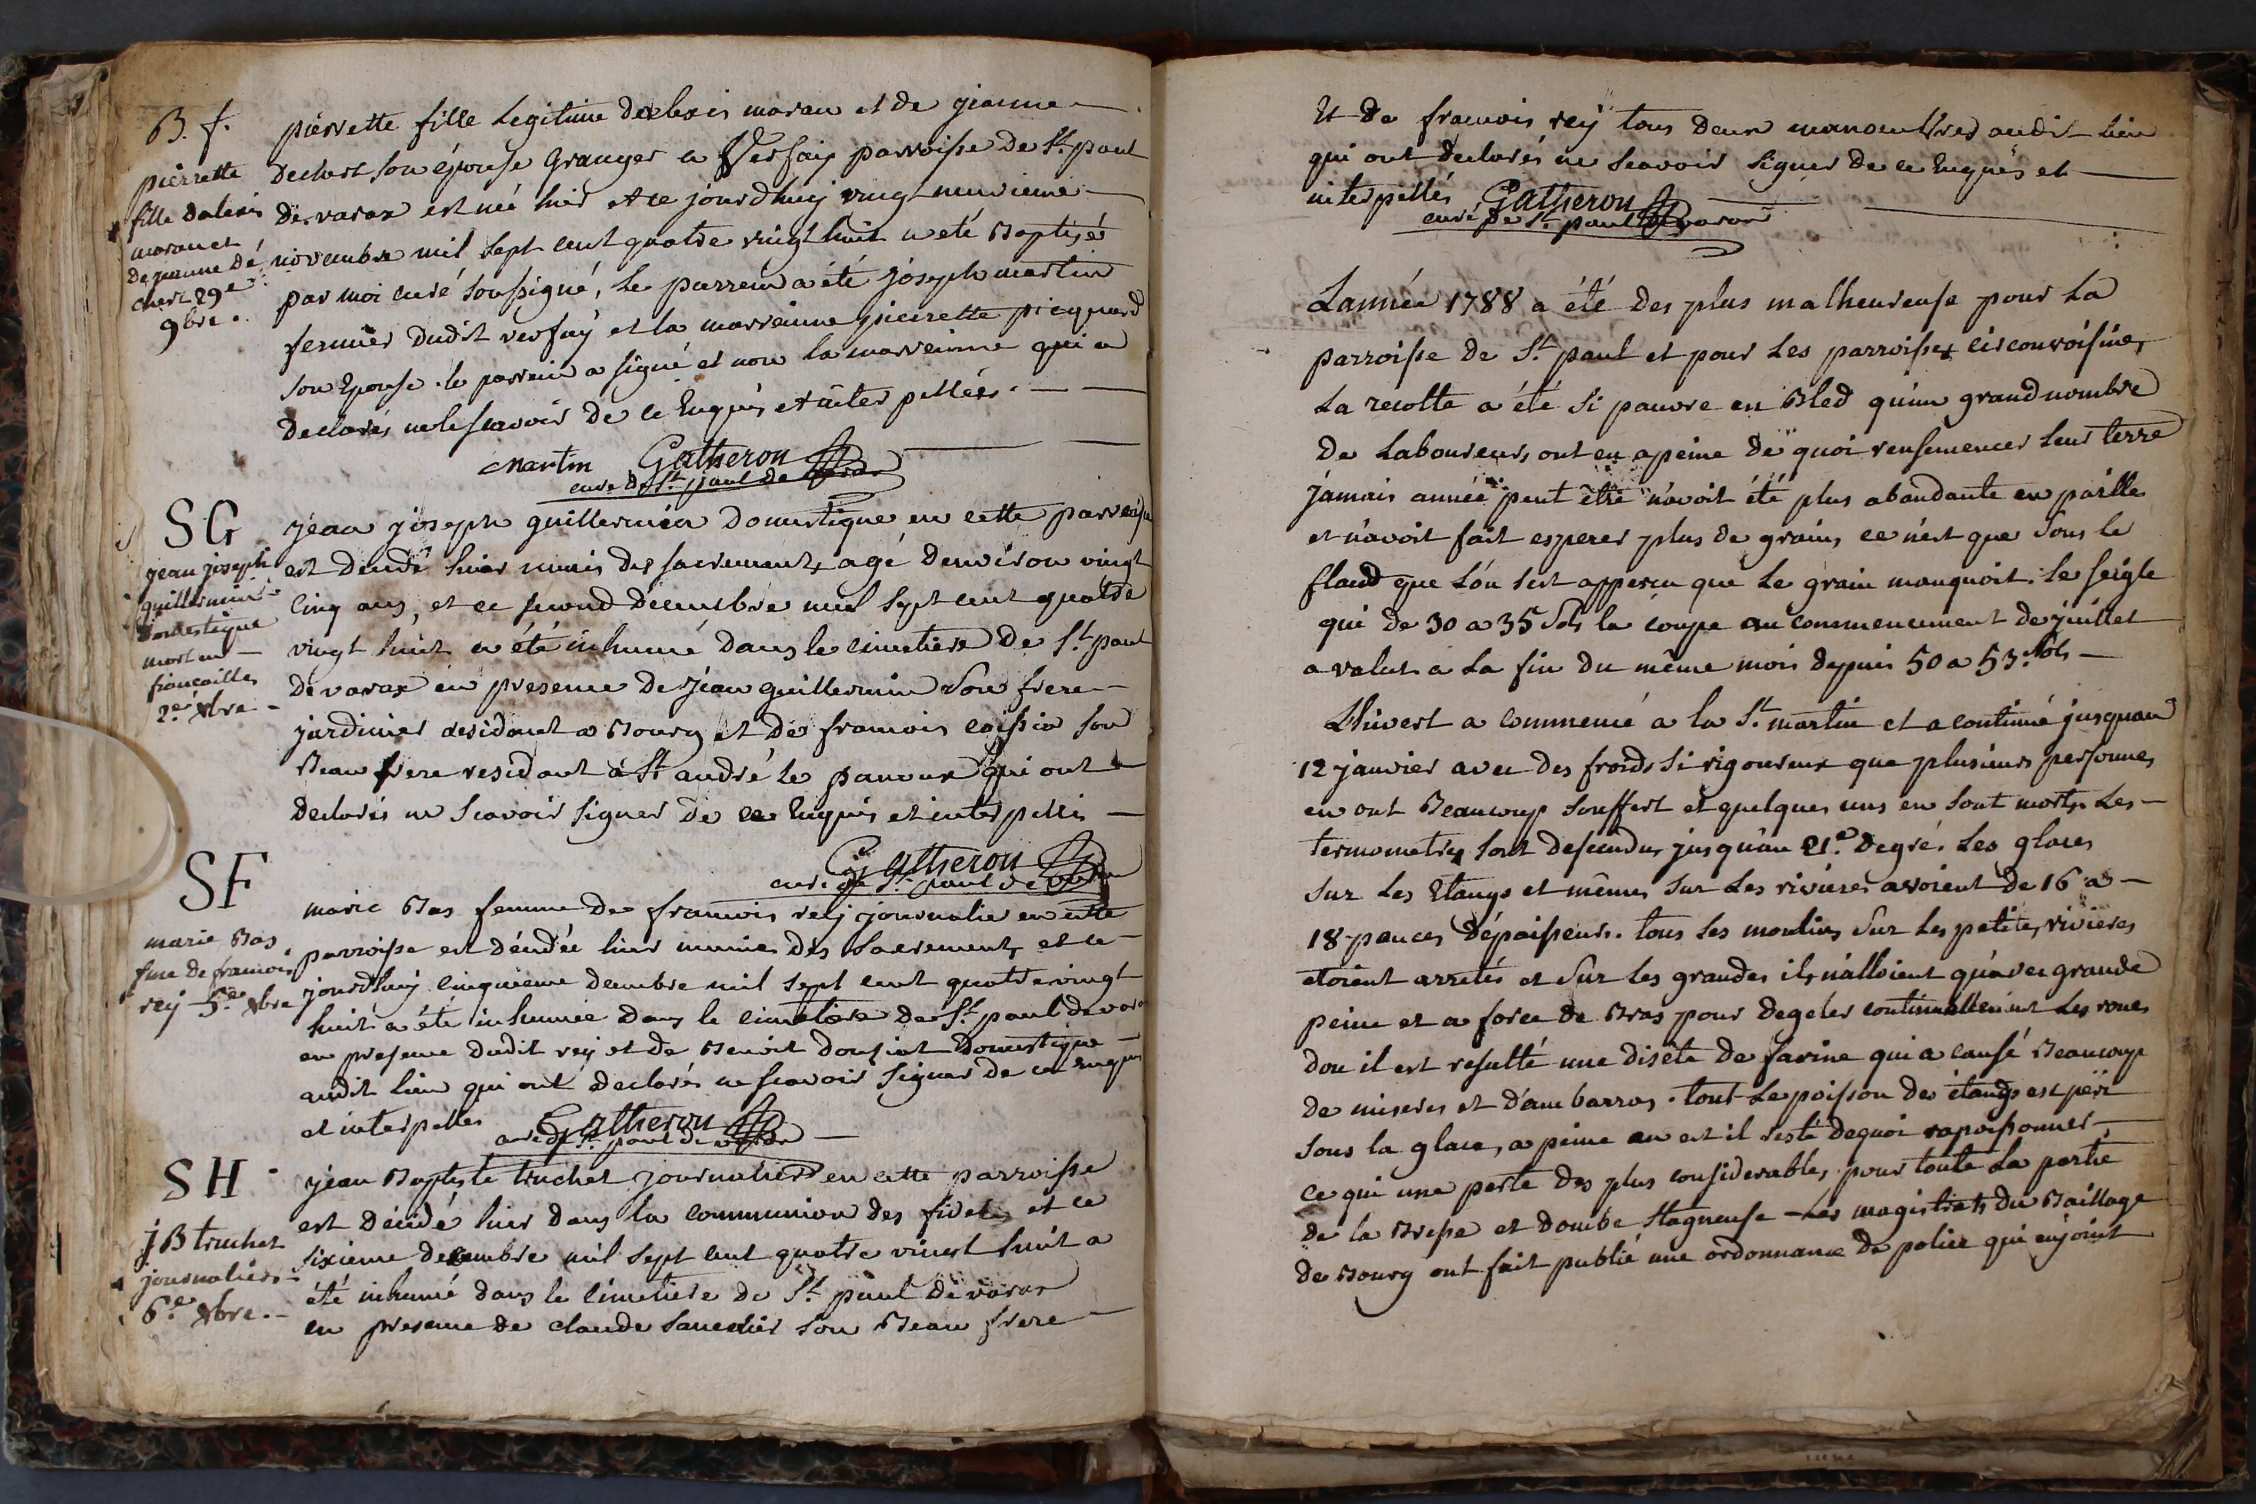 B. f.
pierrette
fille dalexis
moran et
de jeanne dé
chert 29e
9bre.
pierrette fille Legitime dalexis moran et de jeanne
dechert son épouse Granger a Versaiy parroisse de St. paul
de varax est née hier et ce jourdhuy vingt neuvieme
novembre mil sept cent quatre vingt huit a eté Baptisée
par moi curé soussigné, le parrein a été joseph martin
fermier dudit versaÿ et la marreinne pierrette picquard
son Epouse. le parrein a signé et non la marreinne qui a
declarés ne le scavoir de ce Enquis et interpellées.
Martin Gatheron
curé de St. paul de varax
SG
jean joseph
guillermin
domestique
mort en
fiancailles
2e. xbre
jean joseph guillermin domestique en cette parroisse
est decedé hier munis des sacrements, agé denviron vingt
cinq ans, et ce second decembre mil sept cent quatre
vingt huit a été inhumé dans le cimetiere de St. paul
de varax en presence de jean guillermin son frere
jardinier residant a Bourg et de francois son
Beau frere residant à St. andré le panoux qui ont
declarés ne Scavoir signer de ce Enquis et interpellés
Gatheron
curé de St. paul de varax
SF
marie Bas
fme de francois
rey 5e. xbre
marie Bas femme de francois rey journalier en cette
parroisse est décédée hier munie des Sacrements, et ce
jourdhuy cinquieme decembre mil sept cent quatrevingt
huit a été inhumée dans le cimetiere de St. paul de varax
en presence dudit rey et de Benoit domestique
audit lieu qui ont declarés ne scavoir signer de ce enquis
et interpellés Gatheron
curé de St. paul de varax
SH
j B truchet
journalier
6e. xbre.
jean Baptiste truchet journalier en cette parroisse
est décédé hier dans la communion des fideles et ce
sixieme decembre mil sept cent quatre vingt huit a
été inhumé dans le cimetiere de St. paul de varax
en presence de claude son Beau frere
Et de francois reÿ tous deux manoeuvres audit lieu
qui ont declarés ne scavoir signer de ce Enquis et
interpellés Gatheron
curé de St. paul de varax
Lannée 1788 a été des plus malheureuse pour La
parroisse de St. paul et pour Les parroisses circonvoisines,
La recolte a été si pauvre en Bled qu'un grand nombre
de Laboureurs ont eu apeine de quoi rensemencer leur terre
jamais année peut être n'avoit été plus abondante en paille
et n'avoit fait esperer plus de grains, ce n'est que sous le
fleaud que Lón sest apperçu que Le grain manquoit. le seigle
qui de 30 a 35 sols la coupe au commencement de juillet
a valut a La fin du même mois depuis 50 a 53 sols
Lhivert a commencé a la St. martin et a continué jusquau
12 janvier avec des froids si rigoureux que plusieurs personnes,
en ont Beaucoup souffert et quelques uns en sont morts. Les
termometres sont descendus, jusqu'au 21e degré. Les glaces
sur Les Etangs et mêmes sur Les rivieres avoient de 16 a
18 pouces dépaisseurs. tous Les moulins sur Les petites rivieres
etoient arretés et sur les grandes ils n'alloient qu'avec grande
peine et a force de Bras pour degeler continuellement Les roues
dou il est resulté une disete de farine qui a causé Beaucoup
de miseres et d'ambarras. tout Le poisson des étangs est peri
sous la glace, a peine en est il resté dequoi rapoissonner,
ce qui une perte des plus considerables, pour toute La partie
de la Bresse et dombe Stagneuse – Les magistrats du Baillage
de Bourg ont fait publié une ordonnance de police qui enjoint